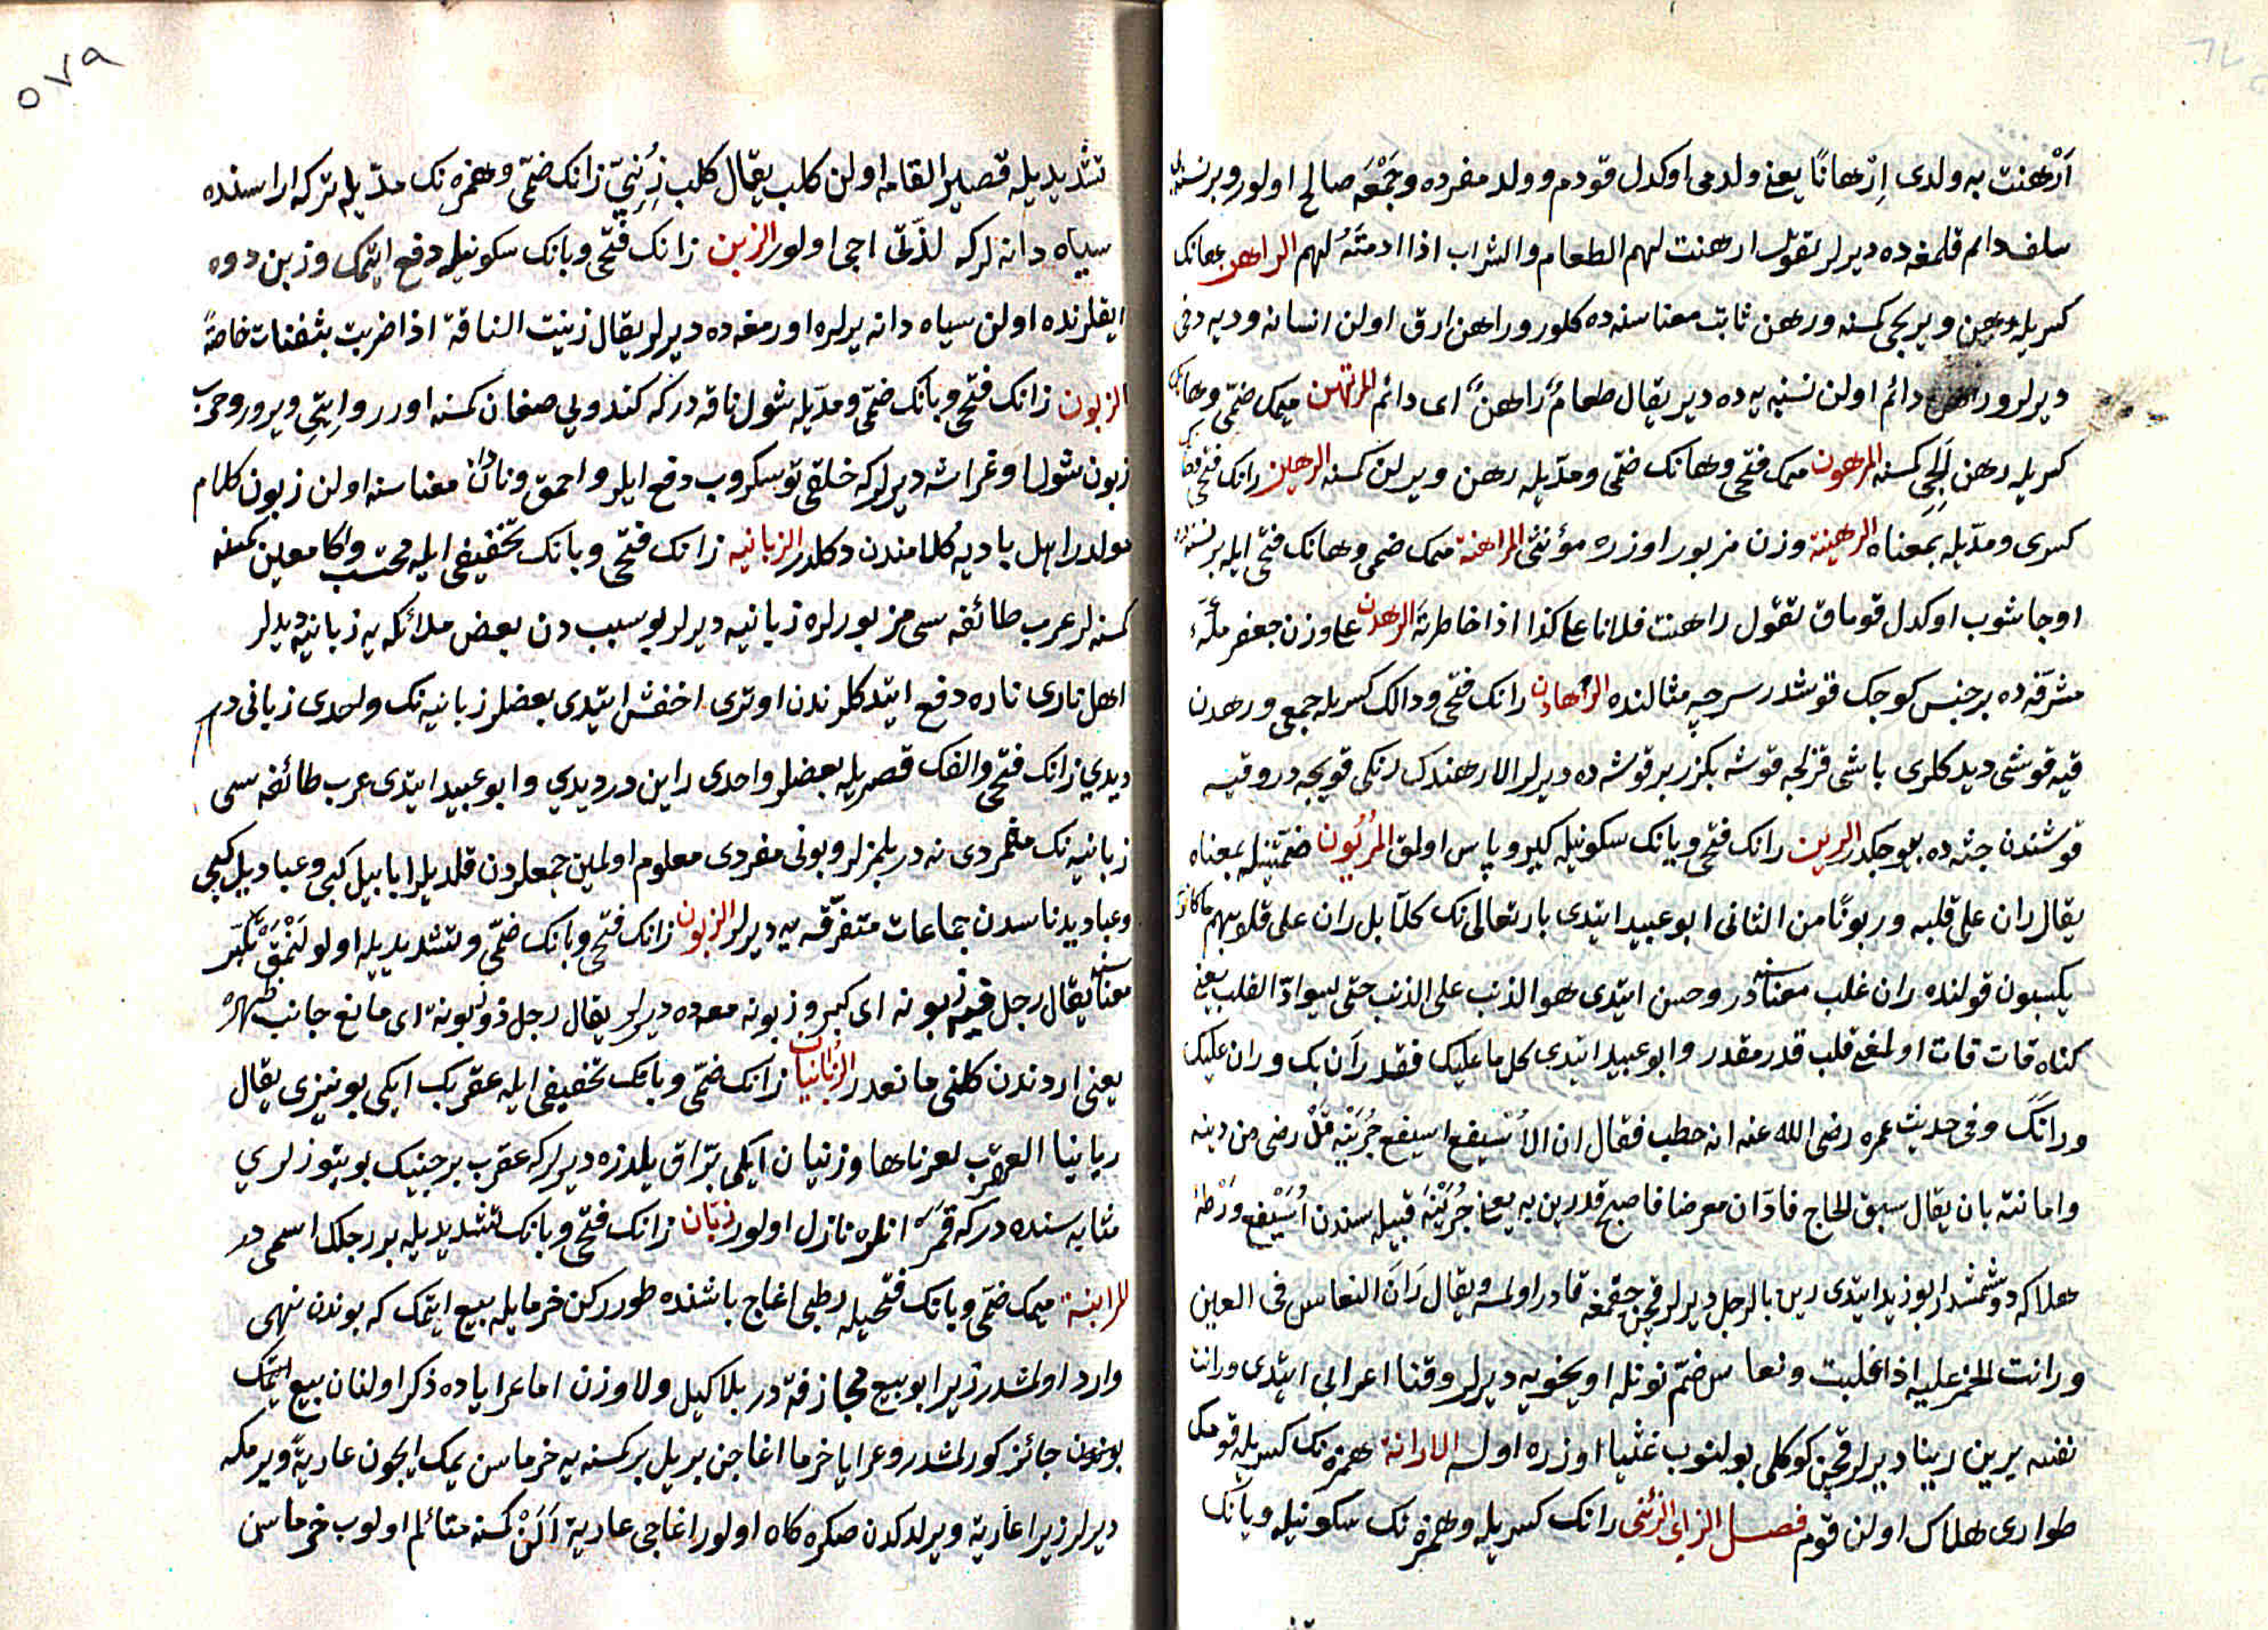 اَرْهنت به ولدى اِرْهانًا يعنى ولدمى اوكدل قودم وولد مفرده وجَمْعَه صالح اولور وبر نسنه
سلف دائم قلمغه ده ديرلر تقول ارهنت لهم الطعام والشراب اذا ادمتَهُ لهم الراهن هانك
كسريله رهن ويريجى كمسنه ورهن ثابت معناسنه ده كلور وراهن ارق اولن انسانه ودیه دخى
ديرلر وراهن دائم اولن نسنيه يه ده دير يقال طعامٌ راهنٌ اى دائم المرتهن ميمك ضمّى وهانك
كسريله رهن آلجى كمسنه المرهون ميمك فتحى وهانك ضمّى ومدّيله رهن ويرلن كمسنه الرهين رانك فتحى هانك
كسرى ومدّيله بمعناه الرهينة وزن مزبور اوزره مؤنثى المراهنة ميمك ضمى وهانك فتحى ايله بر نسنه
اوجاشوب اوكدل قوماق تقول راهنت فلانا على كذا اذا خاطرته الرهدن على وزن جعفر مكّهٔ
مشرّفه ده بر جنس كوجك قوشدر سرچه مثالنده الرهادن رانك فتحى ودالك كسريله جمعى ورهدن
قيه قوشى ديدكلرى باشى قزلجه قوشه بكزر بر قوشه ده ديرلر الا رهندك رنكى قويجه در وقيه
قوشندن جثه ده بيوجكدر الرين رانك فتحى ويانك سكونيله كير وپاس اولمق الرُيُون ضمتينله بمعناه
يقال ران على قلبه وريونًا من الثانى ابو عبيد ايتدى بارتعالى نك كلّا بل ران على قلوبهم ما كانوا
يكسبون قولنده ران غلب معناسنه در وحسن ايتدى هو الذنب على الذنب حتى يسوادّ القلب يعنى
كناه قات قات اولمغى قلب قدر مقدر وابو عبيد ايتدى كل ما عليك فقد رَان بك وران عليك
ورانك وفى حديث عمره رضى الله عنه انه خطب فقال ان الاُسَيْفع اسيفع جُهَيْنه قَدْ رضى من دينه
وامانته بان يقال سبق الحاج فادّان معرضا فاصبح قد رين به يعنى جُهَيْنَه قبيله سندن اُسَيْفع وَرْطۀ
هلاكه دوشمشدر ابو زيد ايتدى رين بالرجل ديرلر قچن چقمغه قادر اولمسه ويقال رَانَ النعاس فى العين
ورانت الخمر عليه اذا غلبت ونعاس ضمّ نونله اويخويه ديرلر وقنا اعرابى ايتدى ورانت
نفسه يرين رينا ديرلر قچن كوكلى بولنوب غثيا اوزره اولسه الارانة همزه نك كسريله قومك
طوارى هلاك اولن قوم فصل الزاى الزئنى زانك كسريله وهمزه نك سكونيله ويانك
تشديديله قصير القامه اولن كلب يقال كلب زِئنىّ زانك ضمّى وهمزه نك مدّيله تركه اراسنده
سياه دانه لركه لذّتى اجى اولور الزبن زانك فتحى وبانك سكونيله دفع ايتمك وزبن دوه
ايقلرنده اولن سياه دانه يرلره اورمغه ده ديرلر يقال زبنت الناقة اذا ضربت بثفنات خاصةً
الزبون زانك فتحى وبانك ضمّى ومدّيله شول ناقه دركه كندويى صغان كمسنه اورر وايتى ويرور وحرب
زبون شول اوغراشه ديرلركه خلقى توسكروب دفع ايلر واحمق ونادان معناسنه اولن زبون كلام
مولدر اهل باديه كلامندن دكلدر الزبانيه زانك فتحى وبانك تخفيفى ايله محتسب واكا معين كمسنه
كمسنه لر عرب طائفه سى مزبورلره زبانيه ديرلر بو سببدن بعض ملائكه يه زبانيه ديديلر
اهل نارى ناره دفع ايتدكلرندن اوترى اخفش ايتدى بعضلر زبانيه نك واحدى زبانى در
ديدي زانك فتحى والفك قصريله بعضلر واحدى زابن در ديدي وابو عبيد ايتدى عرب طائفه سى
زبانيه نك مفردى نه در بلمزلر وبونى مفردى معلوم اولمين جمعلردن قلديلر ابابيل كبى وعباديل كبى
وعباديدناسدن جماعات متفرّقه يه ديرلر الزبون زانك فتحى وبانك ضمّى وتشديديله اولولنمق تكبّر
معناسنه يقال رجل فيه زبونه اى كبر وزبونه معده ديرلر يقال رجل ذو زبونة اى مانع جانب ظهره
يعنى اردندن كلنى مانعدر الزُبانيان زانك ضمّى وبانك تخفيفى ايله عقربك ايكى بوينيزى يقال
زبانيا العقرب لعرناها وزبنيان ايكى برّاق يلدزه ديرلركه عقرب برجينك بوينوزلرى
مثابه سنده دركه قمر انلره نازل اولور زبّان زانك فتحى وبانك تشديديله بر رجلك اسمى در
المزابنة ميمك ضمّى وبانك فتحيله رطبى اغاج باشنده طوررکن خرما يله بيع ايتمك كه بوندن نهى
وارد اولمشدر زيرا بو بيع مجازفه در بلاكيل ولا وزن اما عراياده ذكر اولنان بيع ايتمك
بوندن جائز كورلمشدر وعرايا خرما اغاجن بريل بر كمسنه يه خرماسن يمك ايچون عاريةً ويرمكه
ديرلر زيرا عارية ويرلدكدن صكره كاه اولور اغاجى عارية آلَنْ كمسنه متائلم اولوب خرماسن
٥٧٩